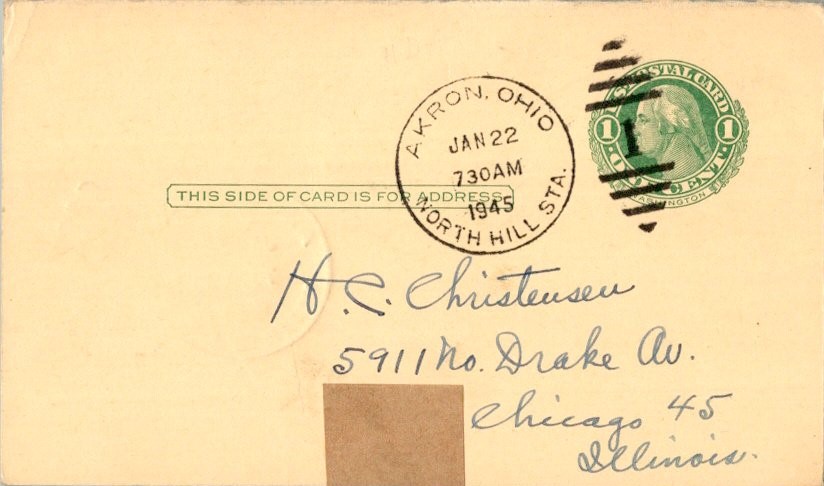 AKRON, OHIO
JAN 22
730AM
1945
NORTH HILL STA.
U.S. POSTAL CARD
1 1
1
ONE CENT
WASHINGTON
THIS SIDE OF CARD IS FOR ADDRESS
H. C. Christensen
5911 No. Drake Av.
Chicago 45
Illinois.